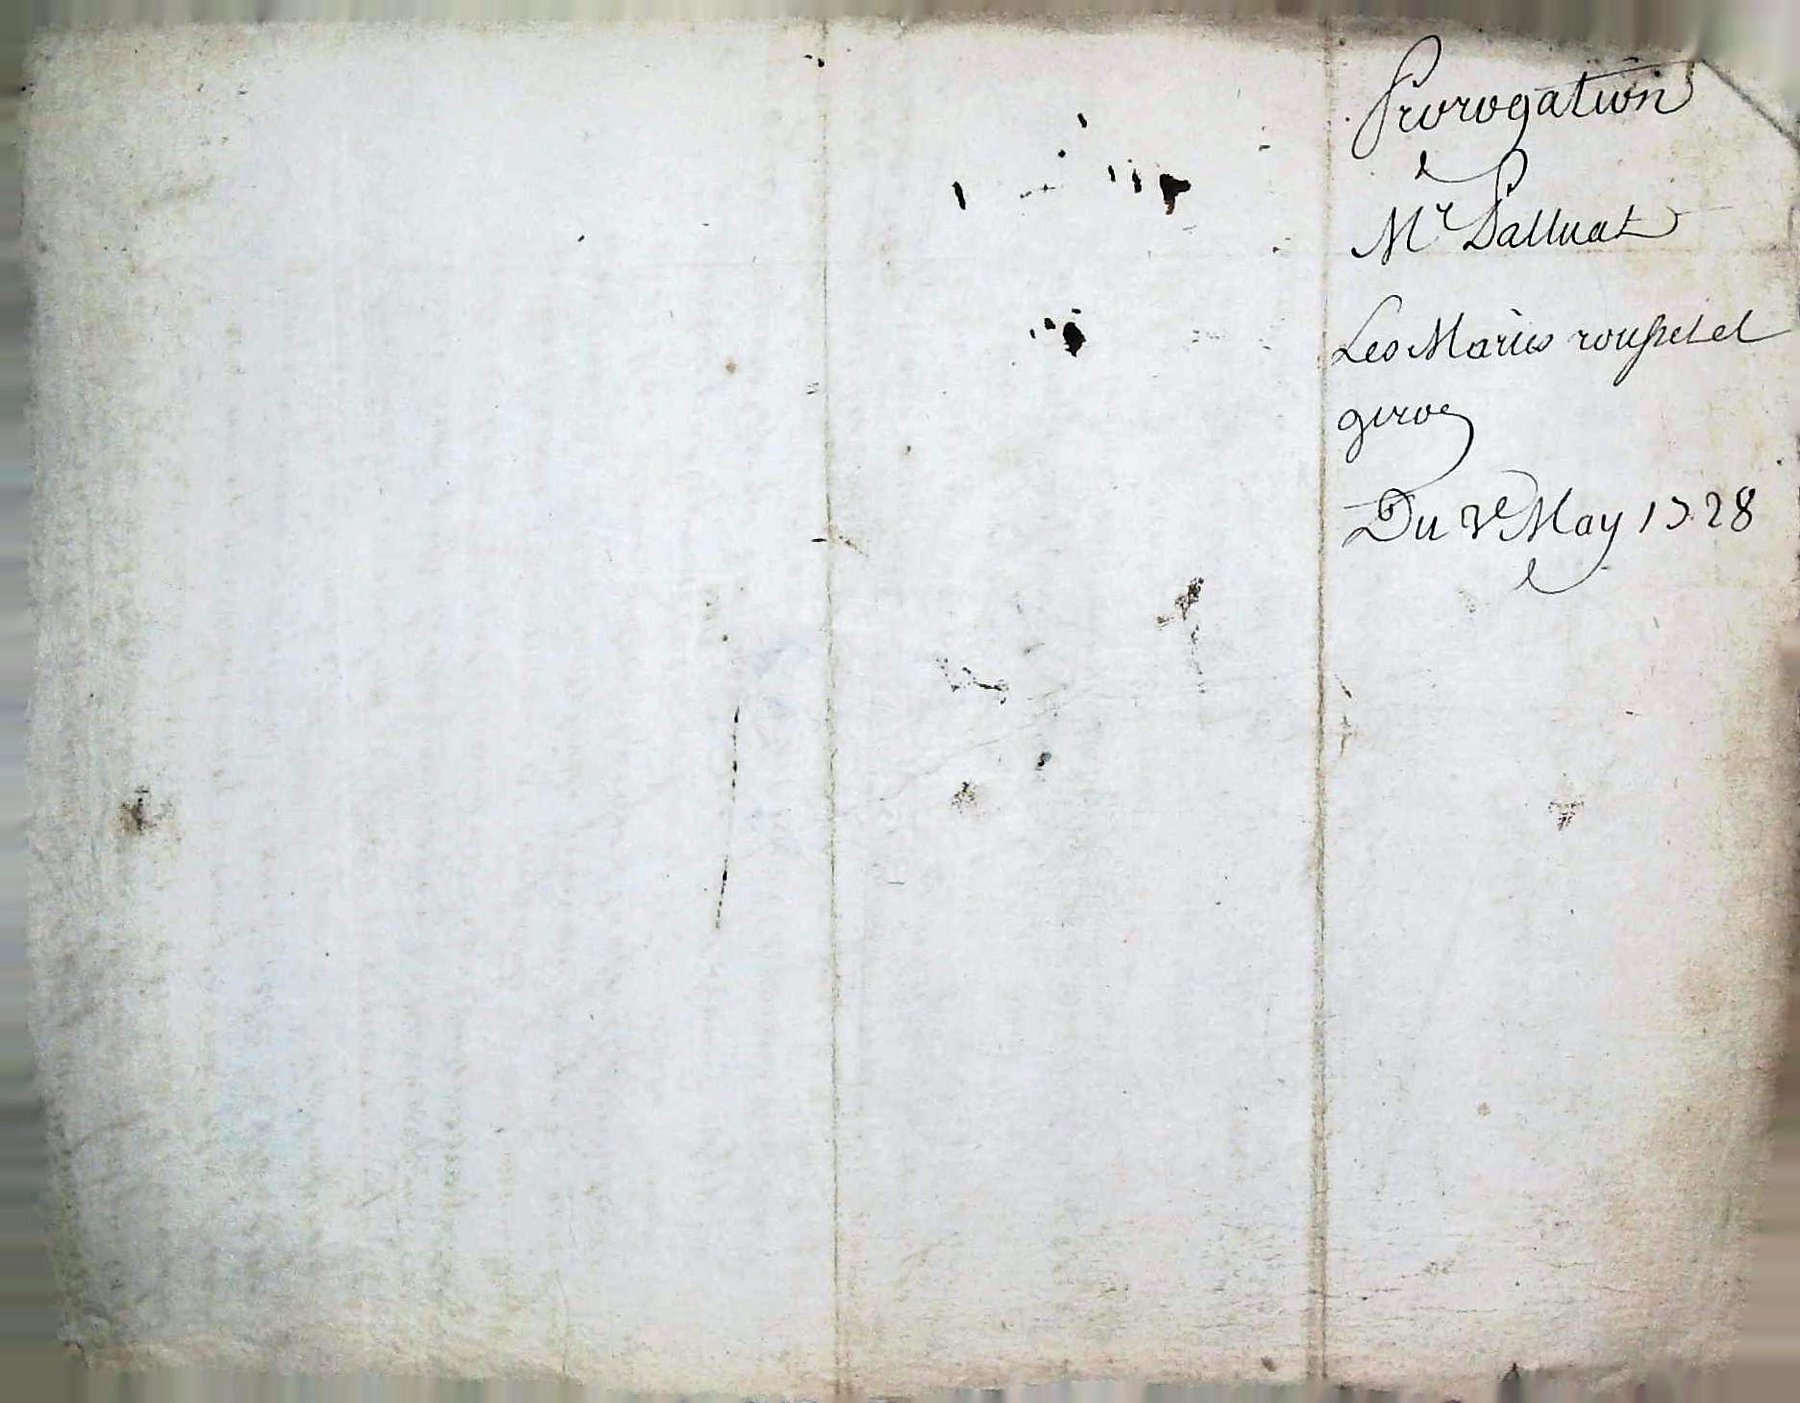 Prorogation
Mr Palluat
Les Maries rousset et
giroz
Du 2e May 1728